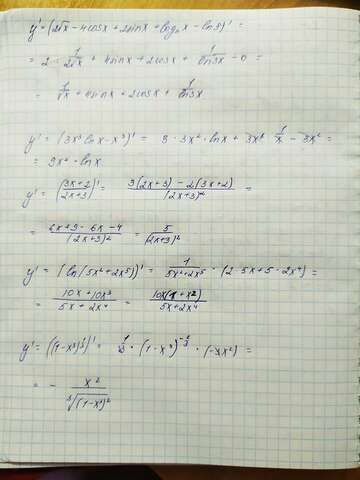 y' = (2√x - 4cosx + 2sinx + log₃x - ln3)' =
= 2 · 1/(2√x) + 4sinx + 2cosx + 1/(ln3x) - 0 =
= 1/√x + 4sinx + 2cosx + 1/(ln3x)
y' = (3x³ lnx - x³)' = 3 · 3x² · lnx + 3x³ · 1/x - 3x² =
= 9x² · lnx
y' = ((3x+2)/(2x+3))' = (3(2x+3) - 2(3x+2))/(2x+3)² =
= (6x+9 - 6x - 4)/(2x+3)² = 5/(2x+3)²
y' = (ln(5x²+2x⁵))' = 1/(5x²+2x⁵) · (2·5x + 5·2x⁴) =
= (10x+10x³)/(5x+2x⁴) = (10x(1+x²))/(5x+2x⁴)
y' = ((1-x³)^(1/3))' = 1/3 · (1-x³)^(-2/3) · (-3x²) =
= - x²/∛((1-x³)²)